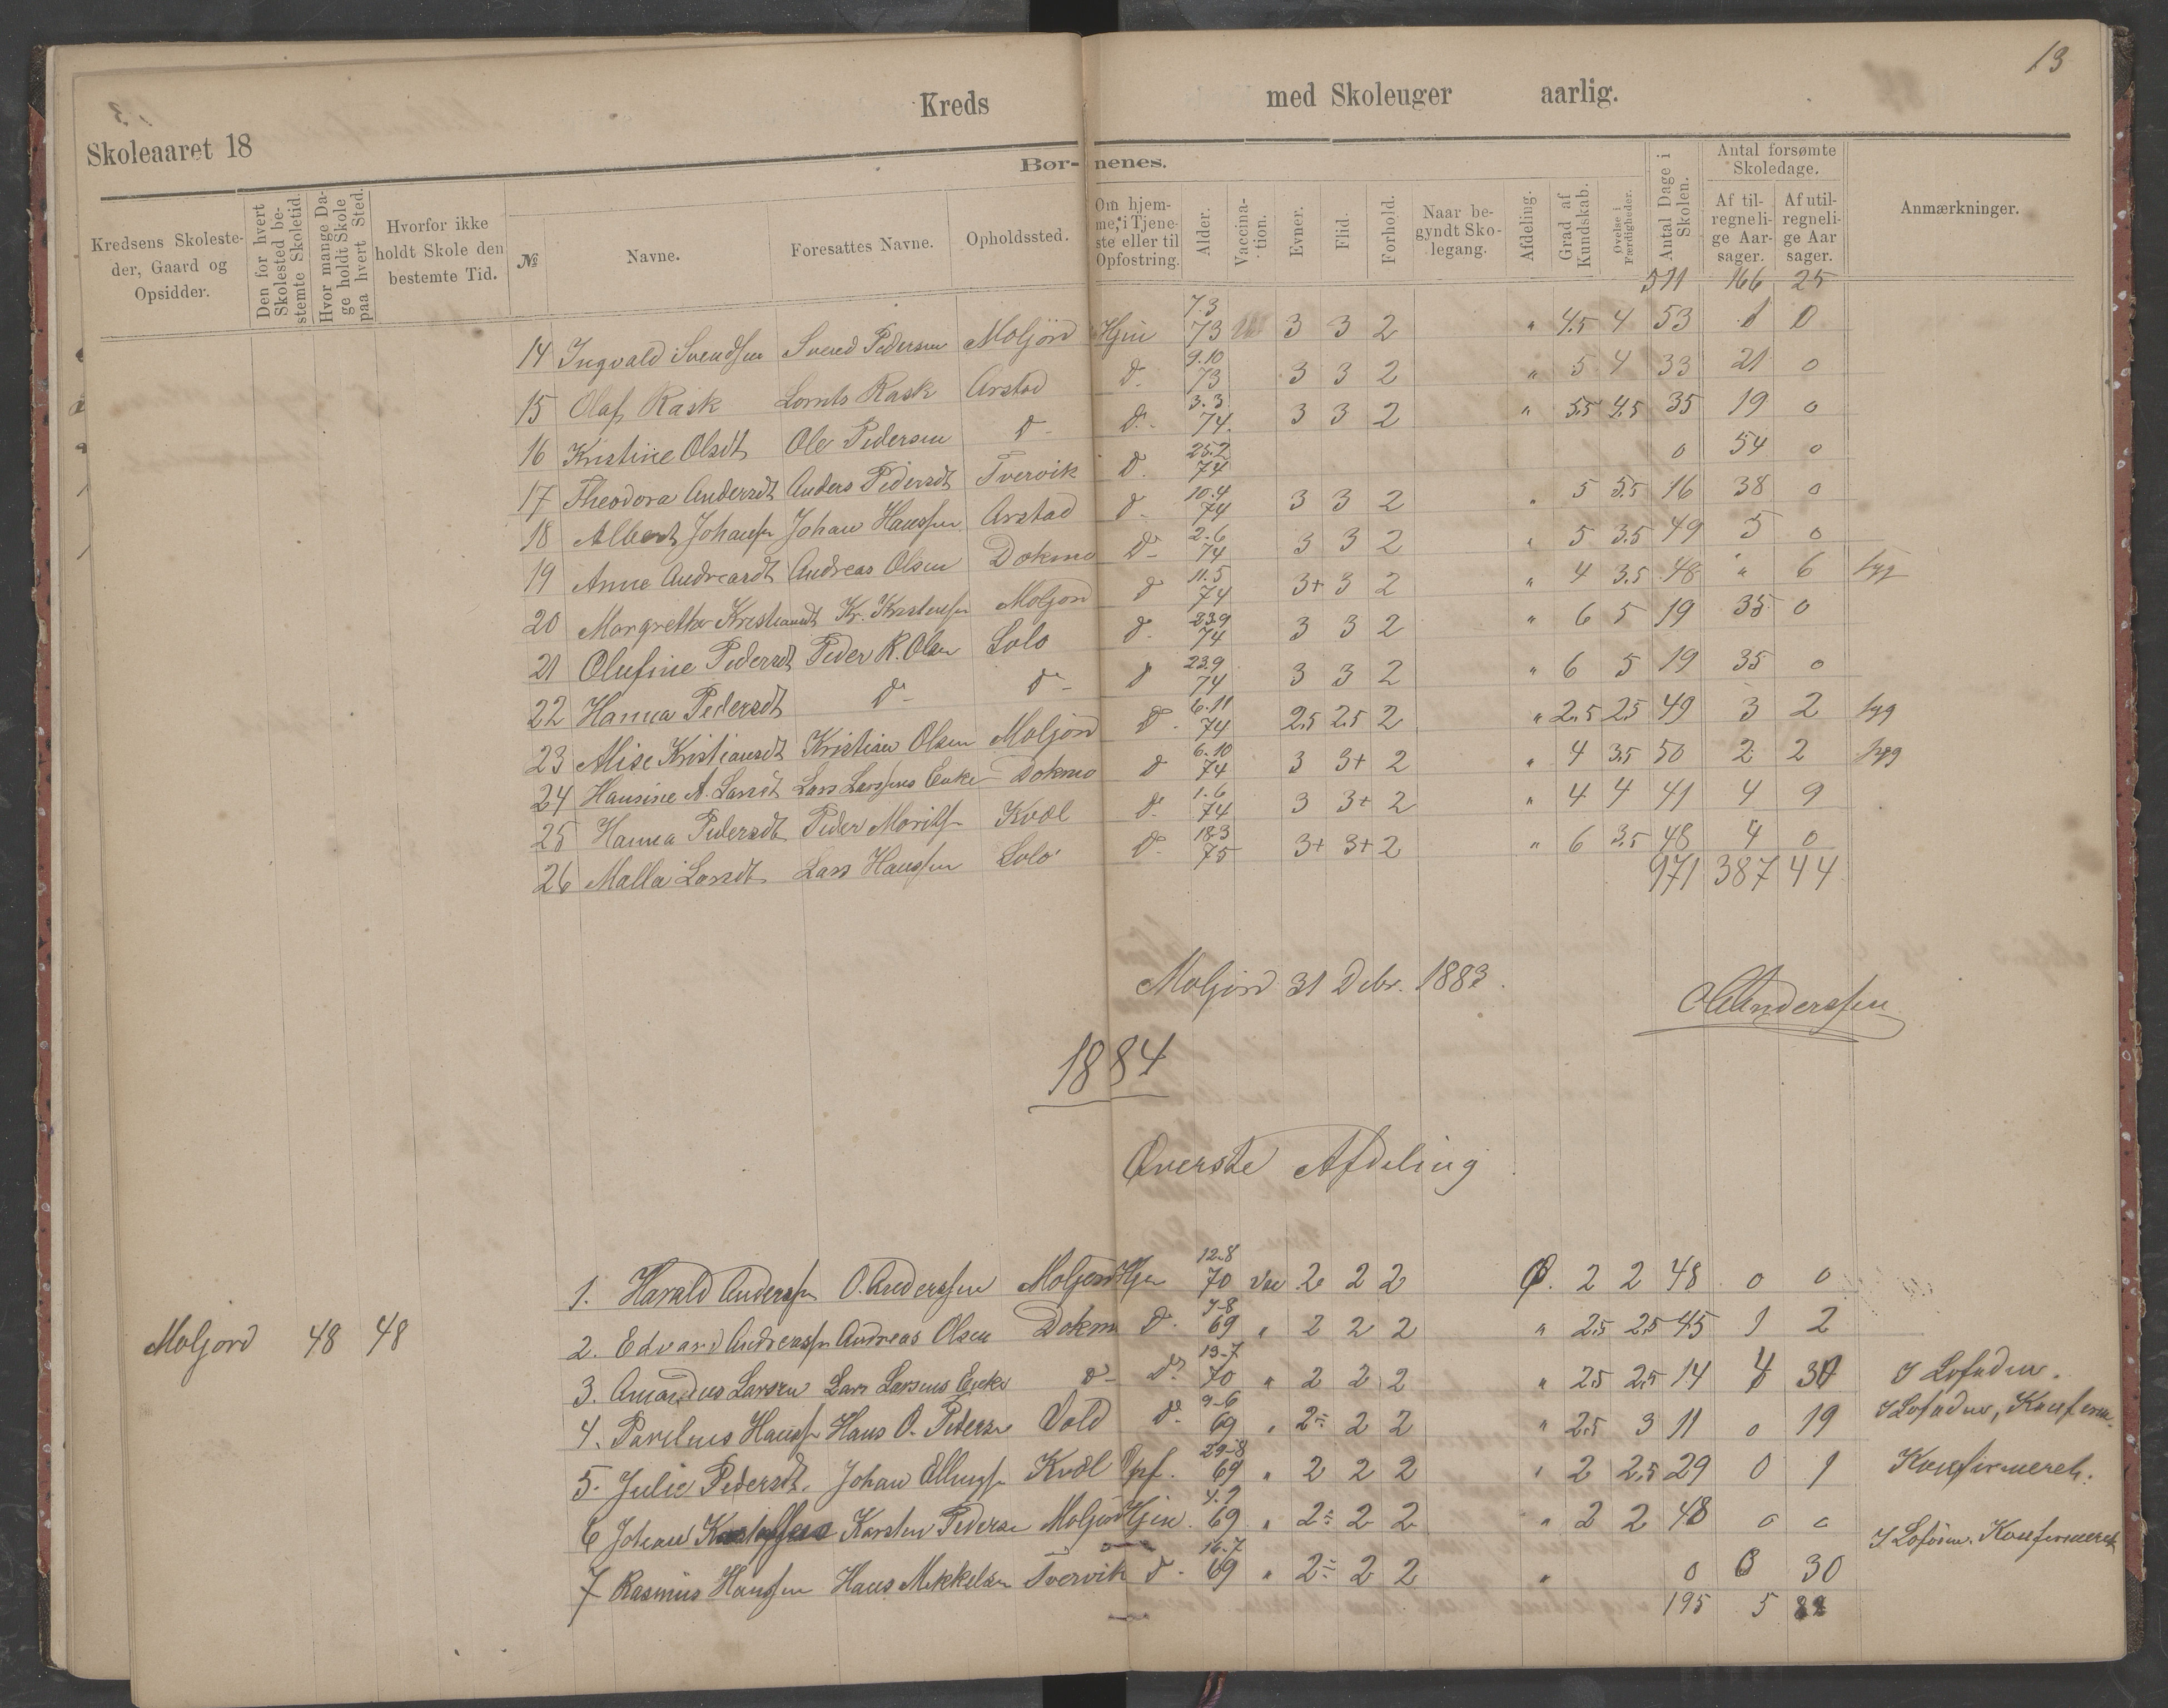 13
Kreds med Skoleuger aarlig.
Skoleaaret 18
Bør- nenes.
Kredsens Skolesteder, Gaard og Opsidder.
Den for hvert Skolested bestemte Skoletid.
Hvor mange Dage holdt Skole paa hvert Sted.
Hvorfor ikke holdt Skole den bestemte Tid.
№
Navne.
Foresattes Navne.
Opholdssted.
Om hjemme, i Tjeneste eller til Opfostring.
Alder.
Vaccination.
Evner.
Flid.
Forhold.
Naar begyndt Skolegang.
Afdeling.
Grad af Kundskab.
Øvelse i Færdigheder.
Antal Dage i Skolen.
Antal forsømte Skoledage.
Af tilregnelige Aarsager.
Af utilregnelige Aarsager.
Anmærkninger.
511 166 25
14 Ingvald Svendsen Svend Pedersen Moljord Hjm 7.3 73 3 3 2 " 4.5 4 53 1 0
15 Olaf Rask Lornts Rask Arstad d. 9.10 73 3 3 2 " 5 4 33 21 0
16 Kristine Olsdt Ole Pedersen d- d. 3.3 74. 3 3 2 " 5.5 4.5 35 19 0
17 Theodora Andersdt Anders Pedersdt Tvervik d. 25.2 74 0 54 0
18 Albert Johansn Johan Hanssen Arstad d. 10.4 74 3 3 2 " 5 5.5 16 38 0
19 Anne Andreasdt Andreas Olsen Dokmo d- 2.6 74 3 3 2 " 5 3.5 49 5 0
20 Margrethe Kristiansdt Kr. Kristensen Moljord d 11.5 74 3+ 3 2 " 4 3.5 48 " 6 syg
21 Olufine Pedersdt Peder R. Olsen Solo d. 23.9 74 3 3 2 " 6 5 19 35 0
22 Hanna Pedersdt d- d- d 23.9 74 3 3 2 " 6 5 19 35 0
23 Alise Kristiansdt Kristian Olsen Moljord d. 6.11 74 2.5 2.5 2 " 2.5 2.5 49 3 2 syg
24 Hansine A. Larsdt Lars Larssens Enke Dokmo d 6.10 74 3 3+ 2 " 4 3.5 50 2 2 syg
25 Hanna Pedersdt Peder Moritsn Kvæl d. 1.6 74 3 3+ 2 " 4 4 41 4 9
26 Malla Larsdt Lars Hanssen Solo d. 18.3 75 3+ 3+ 2 " 6 3.5 48 4 0
971 387 44
Moljord 31 Debr. 1883.
O Anderssen
1884
Øverste Afdeling
1. Harald Anderssn O. Anderssen Moljord Hjm 12-8 70 Vac 2 2 2 Ø. 2 2 48 0 0
Moljord 48 48
2. Edvard Andreassn Andreas Olsen Dokm d. 7-8 69 " 2 2 2 " 2.5 2.5 45 1 2
3. Amandus Larsen Lars Larsens Enke d- d. 13-7 70 " 2 2 2 " 2.5 2.5 14 4 30 I Lofoden.
4. Hanssn Hans O. Pedersn Vold d. 9-6 69 " 2- 2 2 " 2.5 3 11 0 19 I Lofoden, Konfirm.
5. Julie Pedersdt. Johan Ellingsn Kvæl Opf. 29-8 69 " 2 2 2 " 2 2.5 29 0 1 Konfirmeret.
6 Johan Karsten Pedersn Moljord Hjm. 4.9 69 " 2- 2 2 " 2 2 48 0 0
7 Rasmus Hanssen Hans Mikkelsen Tvervik d. 16-7 69 " 2- 2 2 " 0 0 30 I Lofoten. Konfirmeret
195 5 82